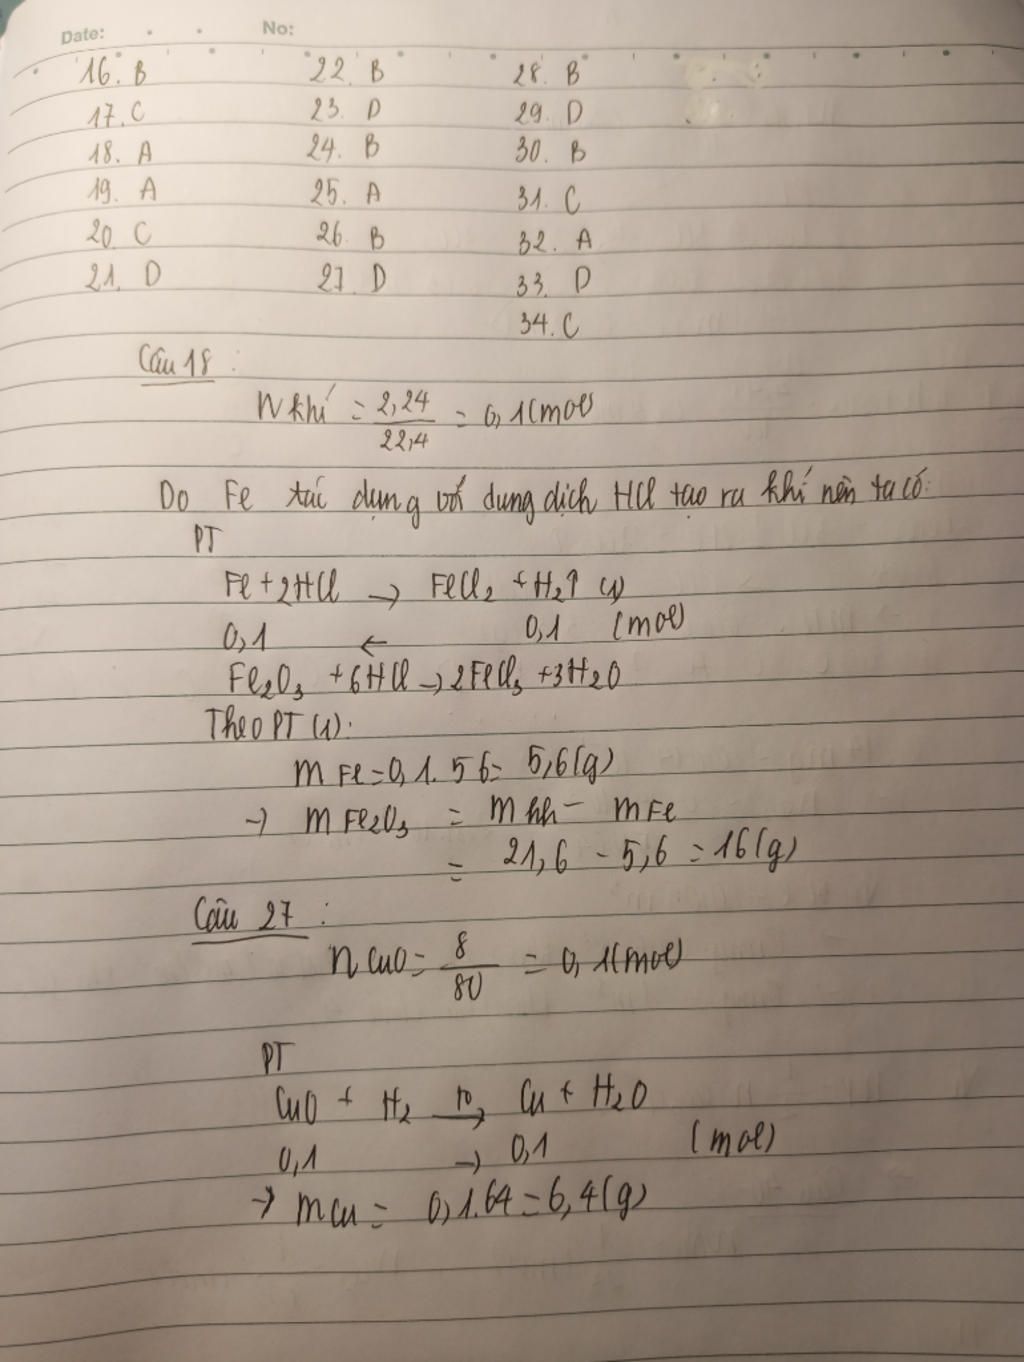 Date: No:
16. B 22. B 28. B
17. C 23. D 29. D
18. A 24. B 30. B
19. A 25. A 31. C
20 C 26. B 32. A
21. D 27. D 33. D
34. C
Câu 18 :
N khí = 2,24/22,4 = 0,1(mol)
Do Fe tác dụng với dung dịch HCl tạo ra khí nên ta có:
PT
Fe + 2HCl → FeCl₂ + H₂↑ (1)
0,1 ← 0,1 (mol)
Fe₂O₃ + 6HCl → 2FeCl₃ + 3H₂O
Theo PT (1):
m Fe = 0,1. 56 = 5,6(g)
→ m Fe₂O₃ = m hh − m Fe
= 21,6 - 5,6 = 16(g)
Câu 27 :
n CuO = 8/80 = 0,1(mol)
PT
CuO + H₂ t⁰→ Cu + H₂O
0,1 → 0,1 (mol)
→ m Cu = 0,1.64 = 6,4(g)